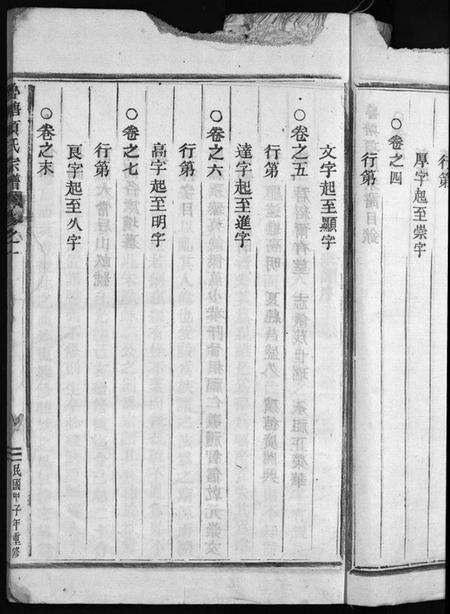 行第
厚字起至崇字
○卷之四
行第
文字起至顯字
○卷之五
行第
達字起至進字
○卷之六
行第
高字起至明字
○卷之七
行第
良字起至久字
○卷之末
項氏宗譜
卷之一
民國甲子年重修